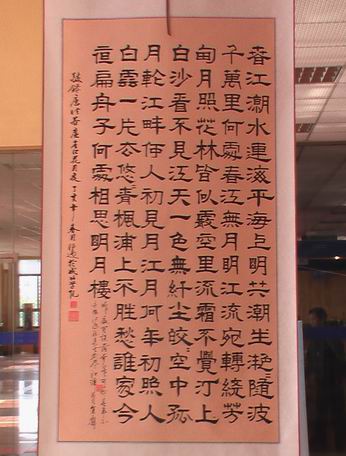 春江潮水連海平海上明共潮生灧隨波
千萬里何處春江無月明江流宛轉繞芳
甸月照花林皆似霰空里流霜不覺汀上
白沙看不見江天一色無纖尘皎空中孤
月輪江畔何人初見月江月何年初照人
白雲一片去悠青楓浦上不胜愁誰家今
扁舟子何處相思明月樓
丁亥年